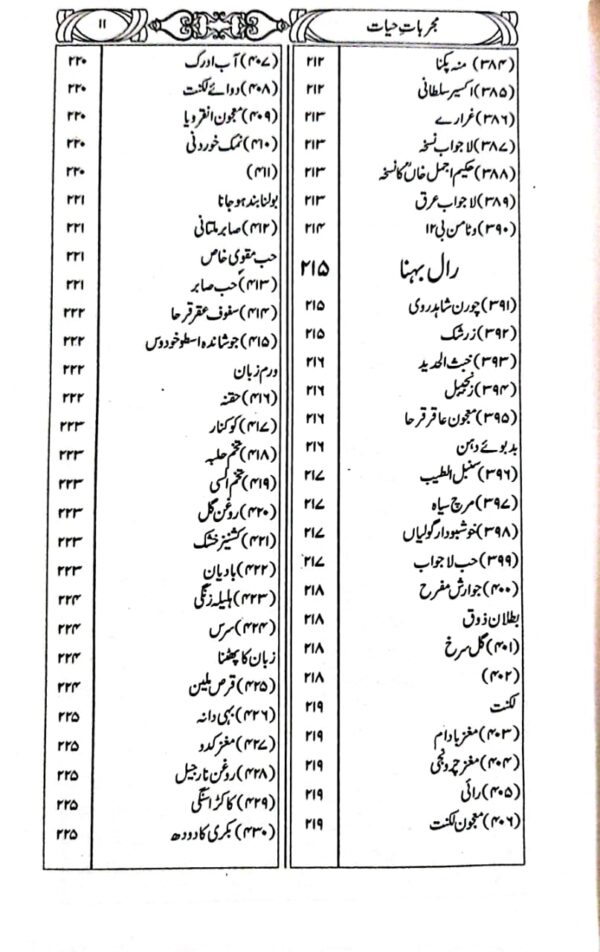 مجرباتِ حیات
۱۱
(۳۸۴) منہ پکنا ۲۱۲
(۳۸۵) اکسیر سلطانی ۲۱۲
(۳۸۶) غرارے ۲۱۳
(۳۸۷) لاجواب نسخہ ۲۱۳
(۳۸۸) حکیم اجمل خاںؒ کا نسخہ ۲۱۳
(۳۸۹) لاجواب عرق ۲۱۳
(۳۹۰) وٹامن بی ۱۲ ۲۱۴
رال بہنا ۲۱۵
(۳۹۱) چورن شاہدروی ۲۱۵
(۳۹۲) زرشک ۲۱۵
(۳۹۳) خبث الحدید ۲۱۶
(۳۹۴) زنجبیل ۲۱۶
(۳۹۵) معجون عاقر قرحا ۲۱۶
بدبوئے دہن ۲۱۶
(۳۹۶) سنبل الطیب ۲۱۷
(۳۹۷) مرچ سیاہ ۲۱۷
(۳۹۸) خوشبودار گولیاں ۲۱۷
(۳۹۹) حب لاجواب ۲۱۷
(۴۰۰) جوارش مفرح ۲۱۸
بطلان ذوق ۲۱۸
(۴۰۱) گل سرخ ۲۱۸
(۴۰۲) ۲۱۸
لکنت ۲۱۹
(۴۰۳) مغز بادام ۲۱۹
(۴۰۴) مغز چرونجی ۲۱۹
(۴۰۵) رائی ۲۱۹
(۴۰۶) معجون لکنت ۲۱۹
(۴۰۷) آب ادرک ۲۲۰
(۴۰۸) دوائے لکنت ۲۲۰
(۴۰۹) معجون انقرویا ۲۲۰
(۴۱۰) نمک خوردنی ۲۲۰
(۴۱۱) ۲۲۰
بولنا بند ہو جانا ۲۲۱
(۴۱۲) صابر ملتانی ۲۲۱
حب مقوی خاص ۲۲۱
(۴۱۳) حب صابر ۲۲۱
(۴۱۴) سفوف عقر قرحا ۲۲۲
(۴۱۵) جوشاندہ اسطوخودوس ۲۲۲
ورم زبان ۲۲۲
(۴۱۶) حقنہ ۲۲۲
(۴۱۷) کوکنار ۲۲۳
(۴۱۸) تخم حلبہ ۲۲۳
(۴۱۹) تخم السی ۲۲۳
(۴۲۰) روغن گل ۲۲۳
(۴۲۱) کشنیز خشک ۲۲۳
(۴۲۲) بادیان ۲۲۳
(۴۲۳) ہلیلہ زنگی ۲۲۴
(۴۲۴) سرس ۲۲۴
زبان کا پھٹنا ۲۲۴
(۴۲۵) قرص ملین ۲۲۴
(۴۲۶) بہی دانہ ۲۲۵
(۴۲۷) مغز کدو ۲۲۵
(۴۲۸) روغن نارجیل ۲۲۵
(۴۲۹) کاکڑا سنگی ۲۲۵
(۴۳۰) بکری کا دودھ ۲۲۵